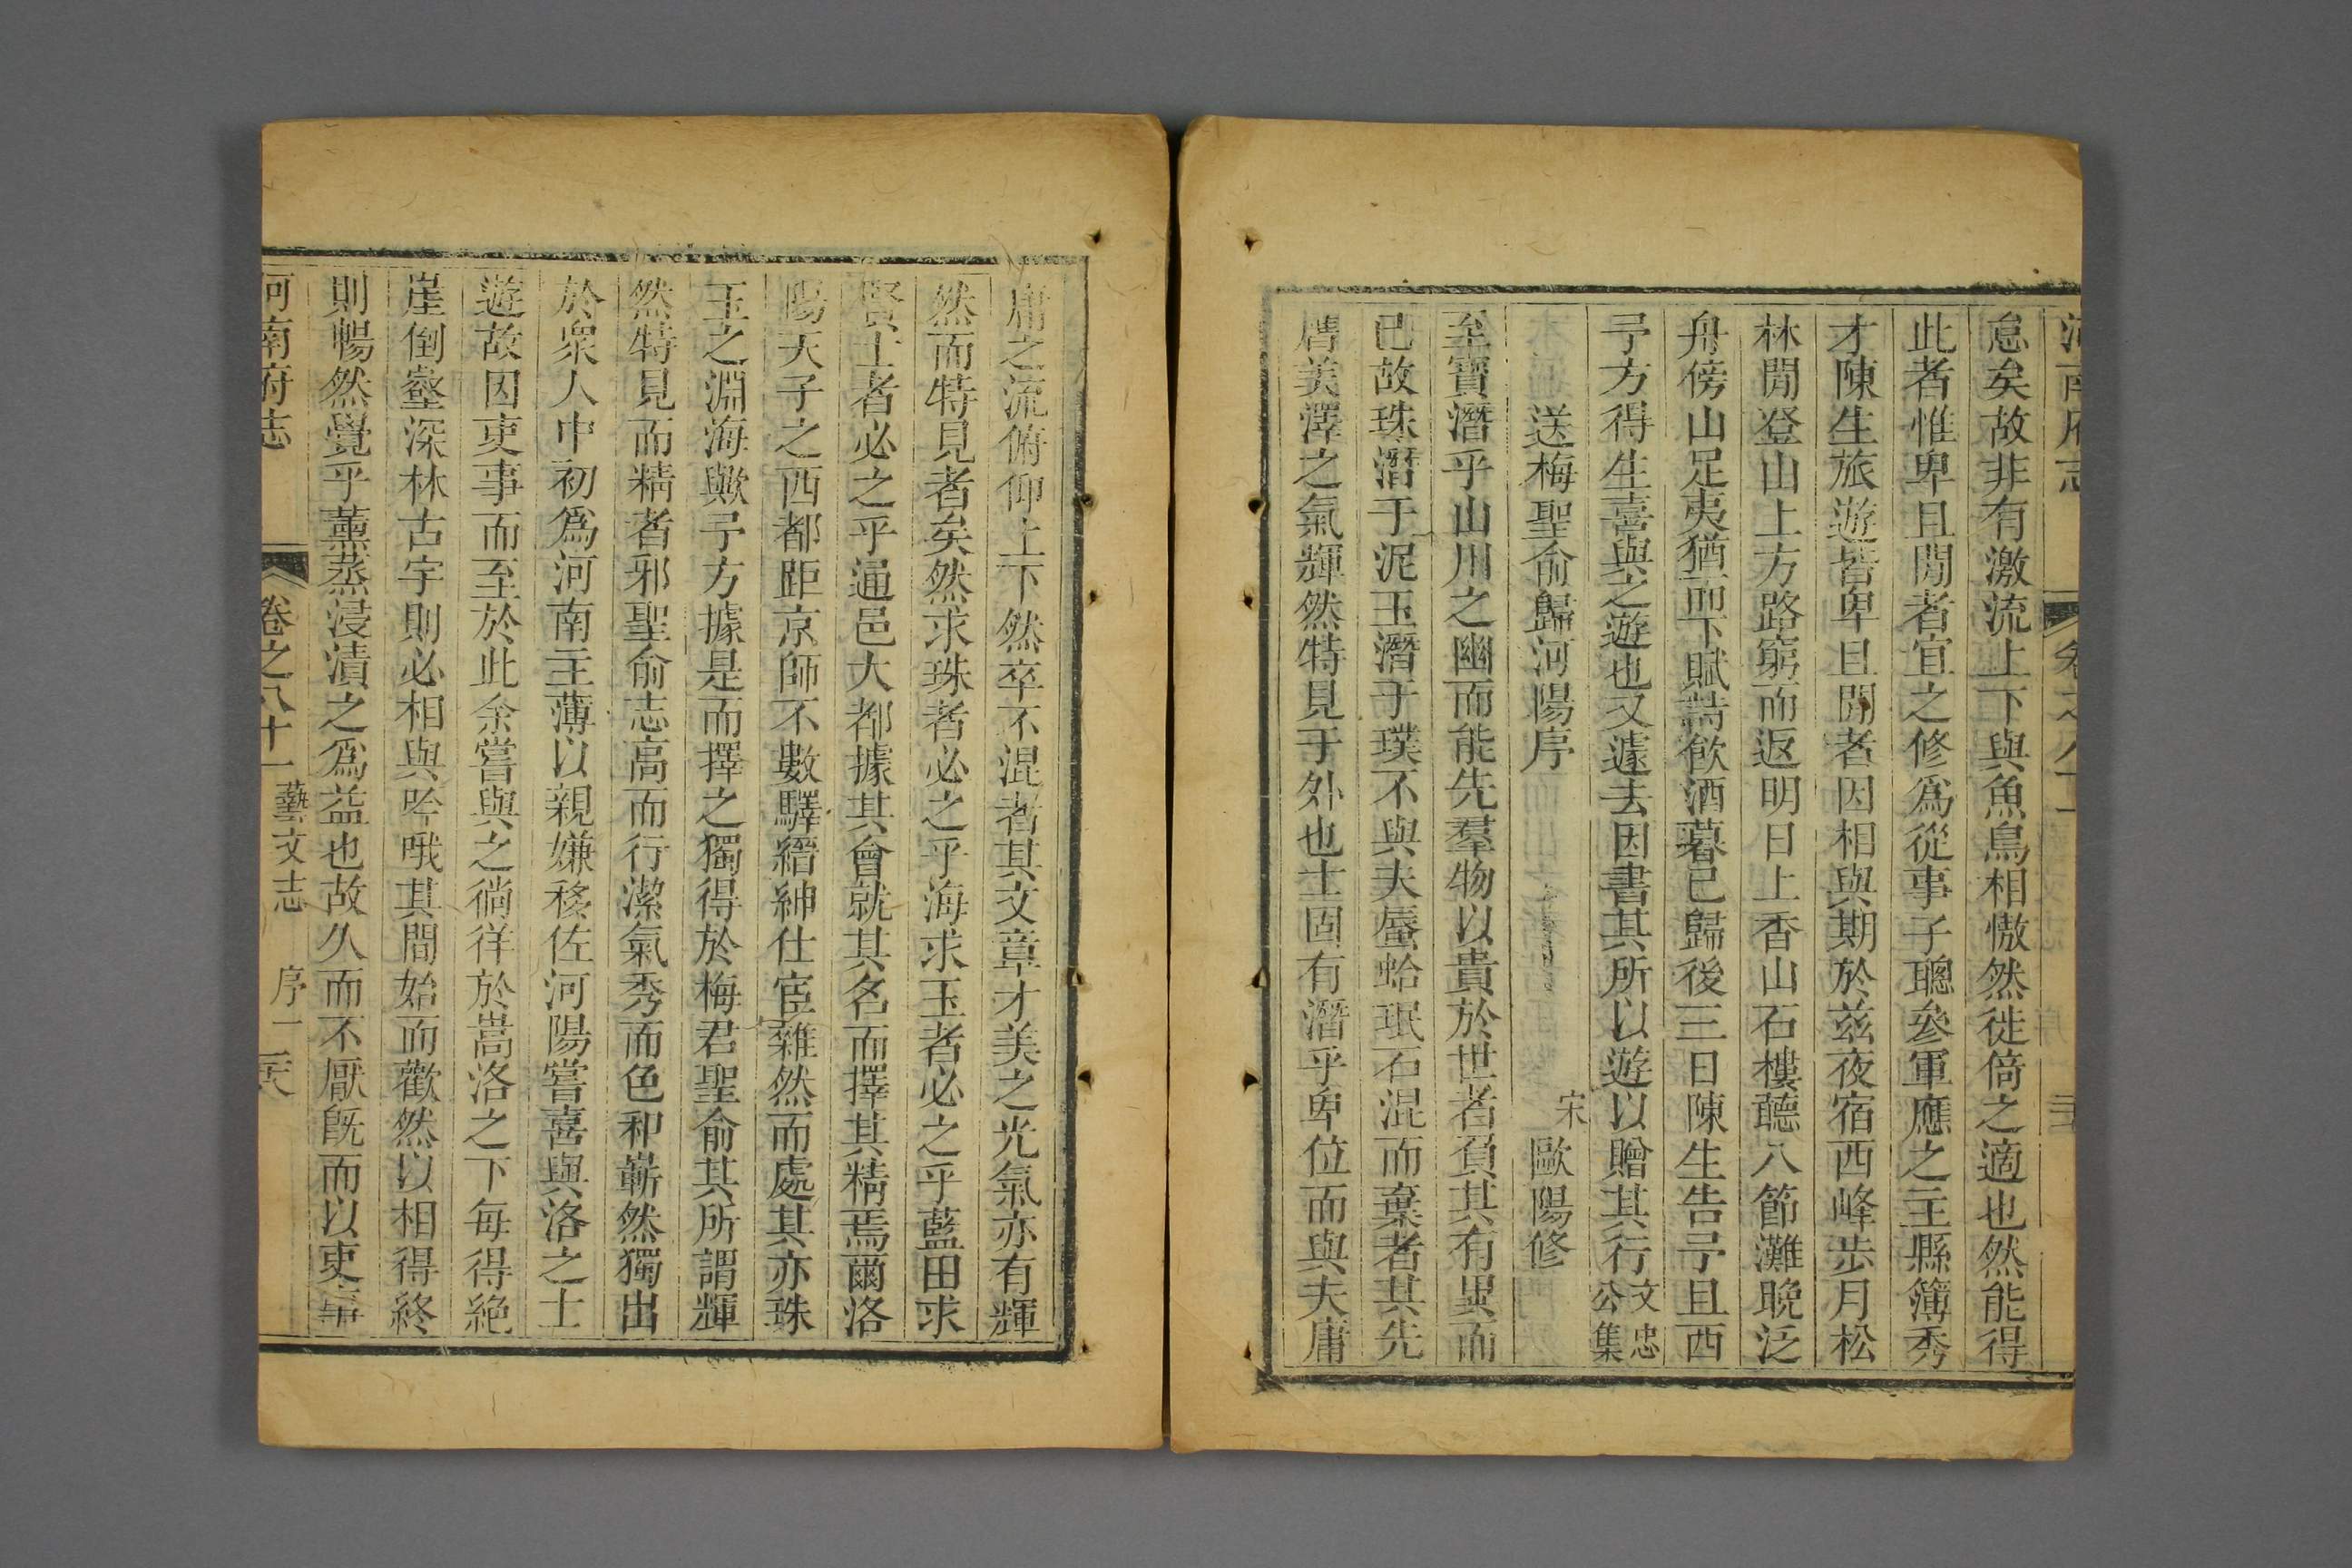 河南府志 卷之八十一
怠矣故非有激流上下與魚鳥相慠然徙倚之適也然能得
此者惟卑且閒者宜之修爲從事子聰參軍應之主縣簿秀
才陳生旅遊皆卑且閒者因相與期於兹夜宿西峰步月松
林間登山上方路窮而返明日上香山石樓聽八節灘晚泛
舟傍山足夷猶而下賦詩飲酒暮已歸後三日陳生告予且西
予方得生喜與之遊也又遽去因書其所以遊以贈其行文忠公集
送梅聖俞歸河陽序 宋歐陽修
至寶潛乎山川之幽而能先羣物以貴於世者負其有異而
已故珠潛于泥玉潛于璞不與夫蜃蛤珉石混而棄者其先
膺美澤之氣輝然特見于外也士固有潛乎卑位而與夫庸
庸之流俯仰上下然卒不混者其文章才美之光氣亦有輝
然而特見者矣然求珠者必之乎海求玉者必之乎藍田求
賢士者必之乎通邑大都據其會就其名而擇其精焉爾洛
陽天子之西都距京師不數驛縉紳仕宦雜然而處其亦珠
玉之淵海歟予方據是而擇之獨得於梅君聖俞其所謂輝
然特見而精者邪聖俞志高而行潔氣秀而色和嶄然獨出
於衆人中初爲河南主薄以親嫌移佐河陽嘗喜與洛之士
遊故因吏事而至於此余嘗與之徜徉於嵩洛之下每得絶
崖倒壑深林古宇則必相與吟哦其間始而歡然以相得終
則暢然覺乎薰蒸浸漬之爲益也故久而不厭旣而以吏事
河南府志 卷之八十一 藝文志 序一